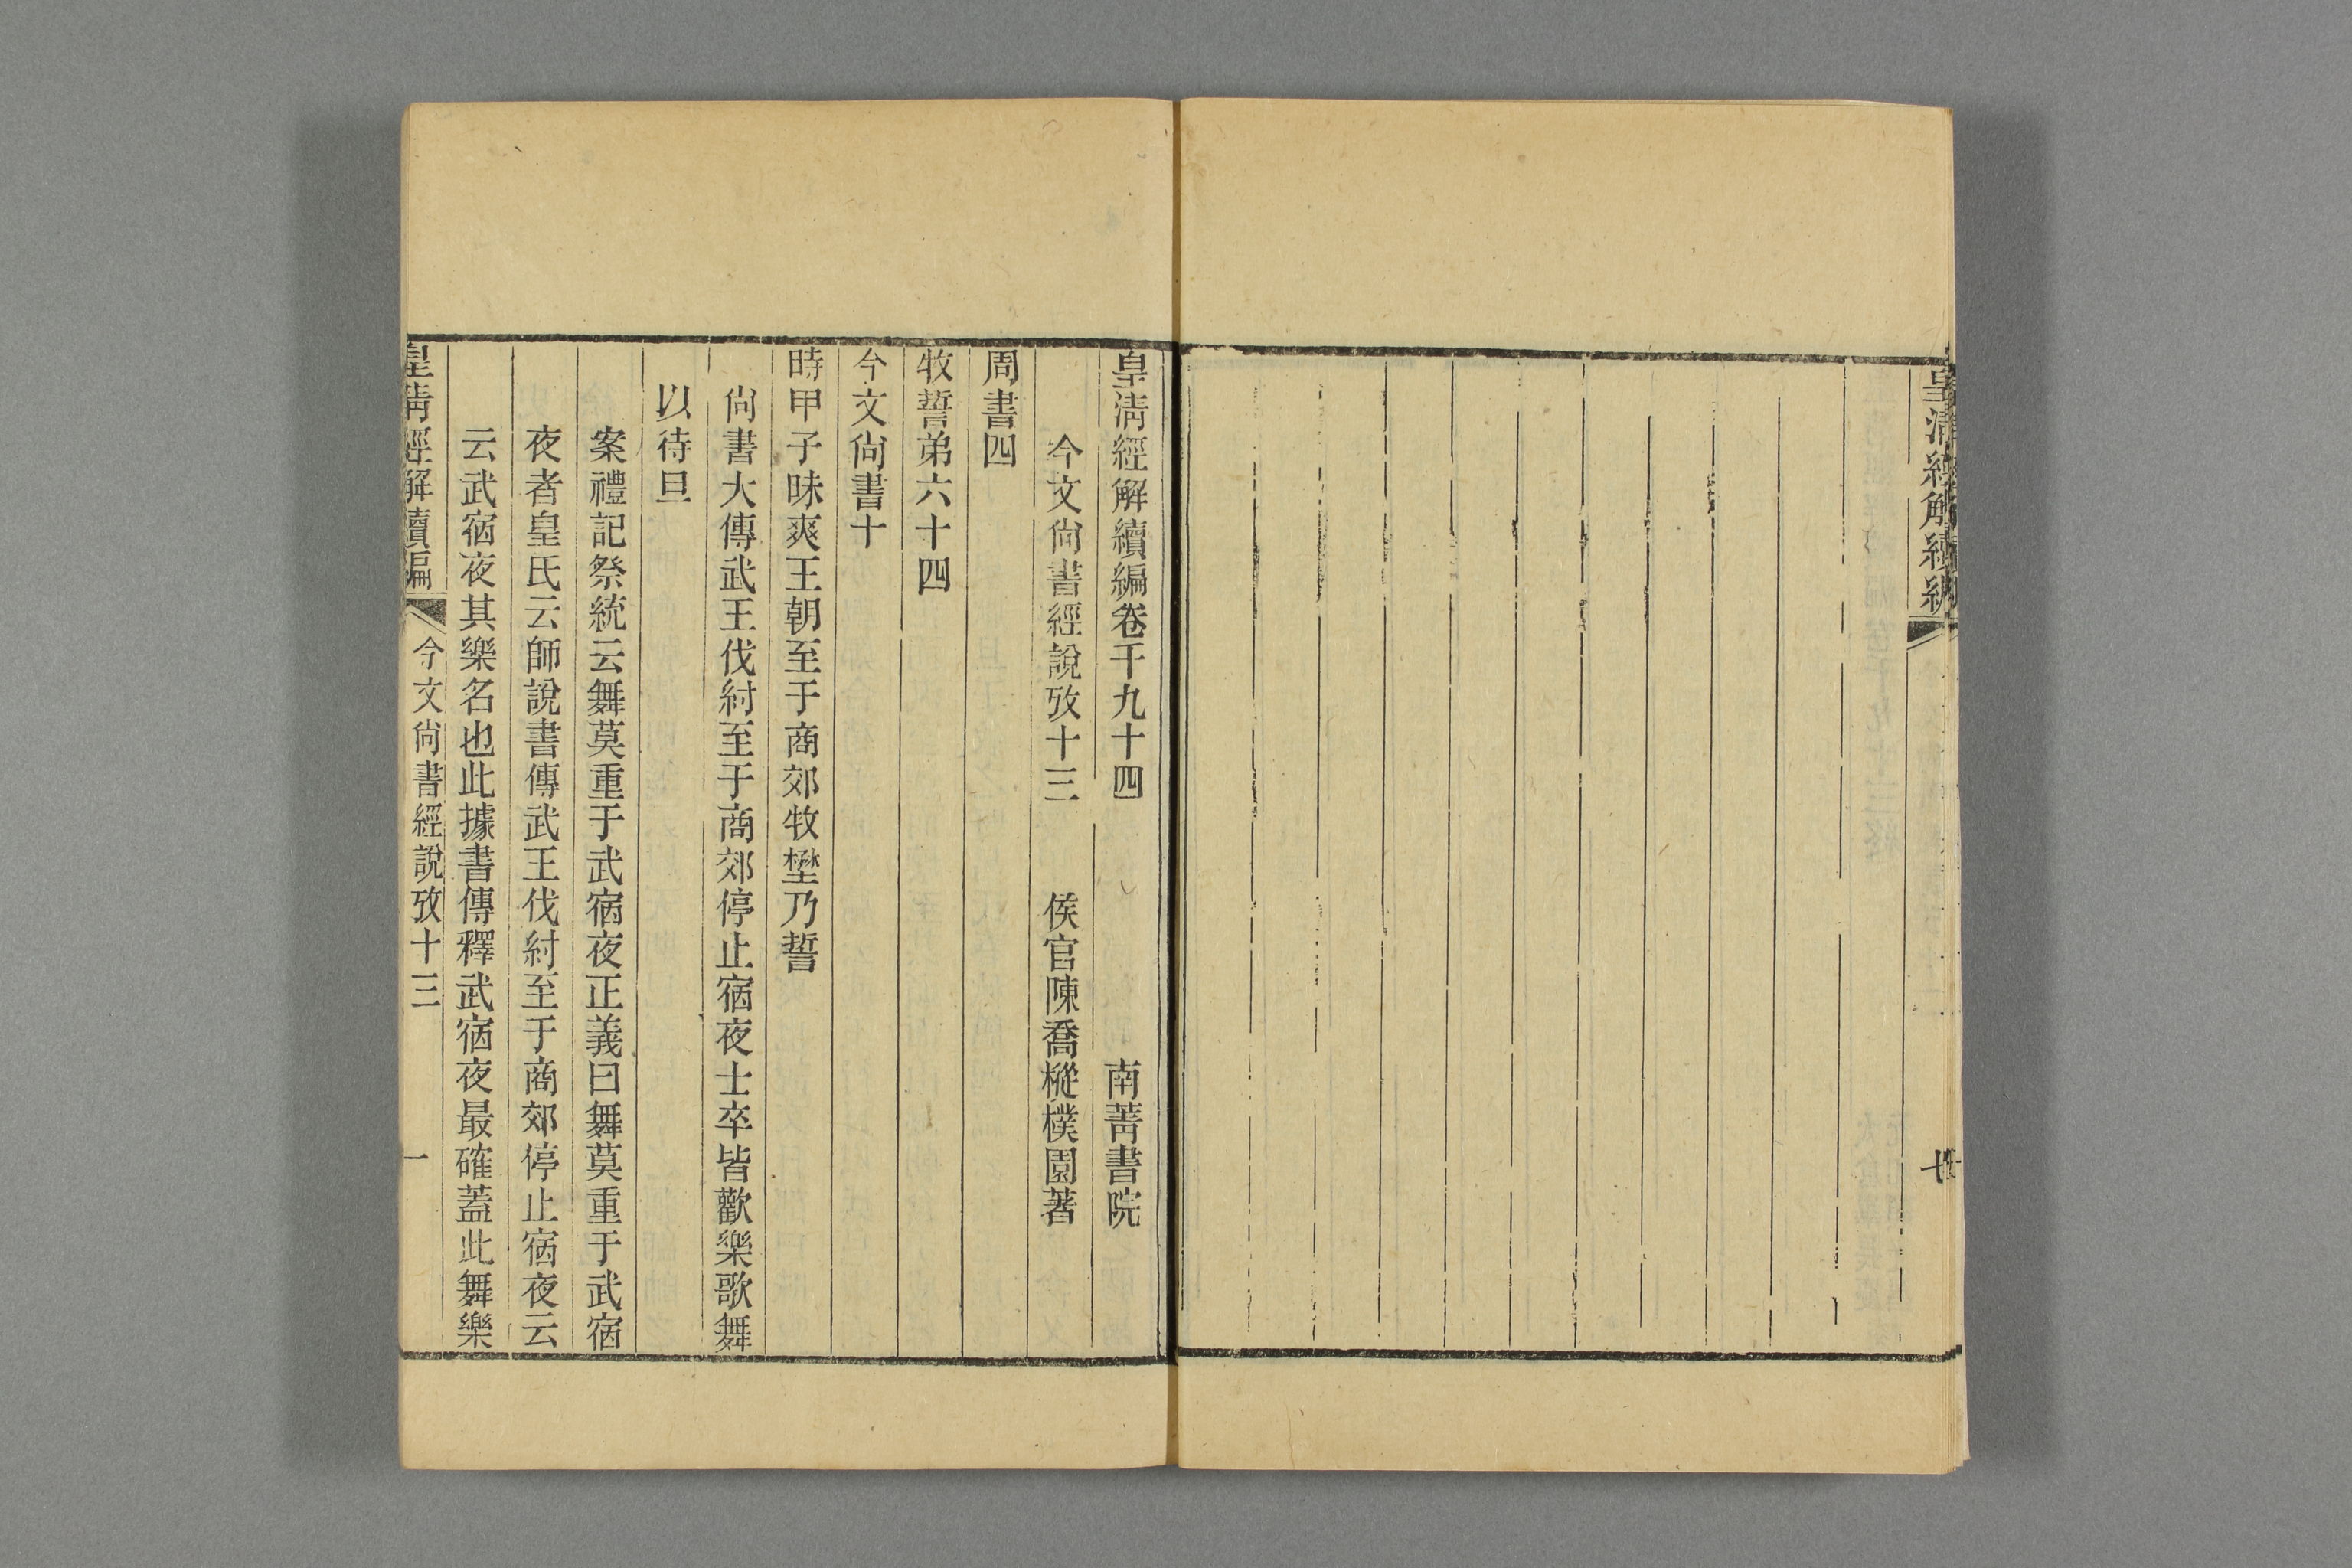 皇清經解續編
皇清經解續編卷千九十四 南菁書院
今文尙書經說攷十三 侯官陳喬樅樸園著
周書四
牧誓弟六十四
今文尙書十
時甲子昧爽王朝至于商郊牧壄乃誓
尙書大傳武王伐紂至于商郊停止宿夜士卒皆歡樂歌舞
以待旦
案禮記祭統云舞莫重于武宿夜正義曰舞莫重于武宿
夜者皇氏云師說書傳武王伐紂至于商郊停止宿夜云
云武宿夜其樂名也此據書傳釋武宿夜最確蓋此舞樂
皇淸經解續編 今文尙書經說攷十三 一